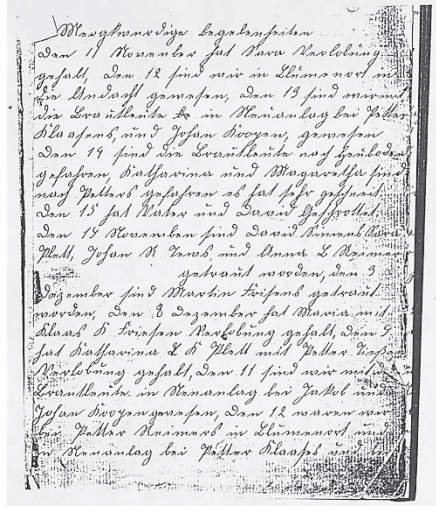 Mergkwurdige begebenheiten
Den 11 November hat Sara Verlobung
gehabt, Den 12 sind wir in Blumenort in
die Andacht gewesen, Den 13 sind wir mit
die Brautleute in Neuanlag bei Petter
Klaasens, und Johan Koopen, gewesen
Den 14 sind die Brautleute nach Heuboden
gefahren, Katharina und Magaretha sind
nach Petters gefahren es hat sehr geschneit
Den 15 hat Vater und David Geschrottet,
Den 17 November sind David Simens Sara
Plett, Johan R Tews und Anna L Reimer
getraut worden, den 3
Dezember sind Martin Frisens getraut
worden, Den 8 Dezember hat Maria mit
Klaas K Friesen Verlobung gehabt, Den 9
hat Katharina L K Plett mit Petter
Verlobung gehabt, Den 11 sind wir mit
Brautleute in Neuanlag bei Jakob und
Johan Koopen gewesen, Den 12 waren wir
bei Petter Reimers in Blumenort und
in Neuanlag bei Petter Klaases und